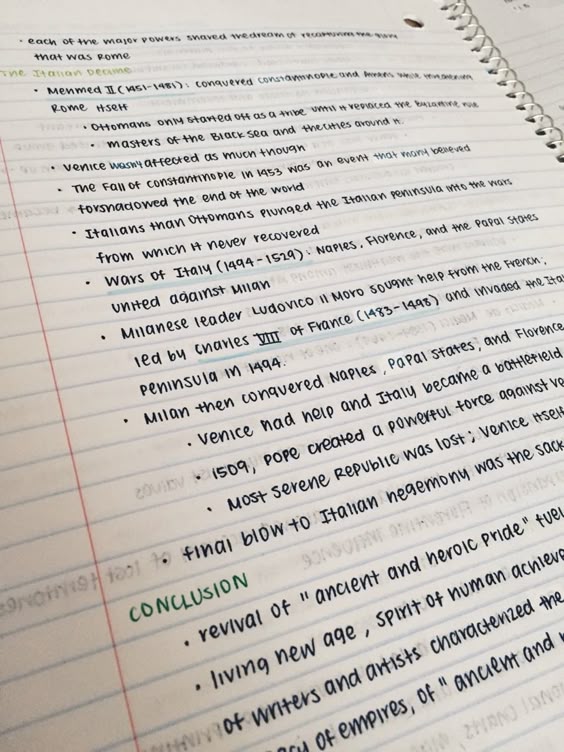 • each of the major powers shared the dream of recapturing the glory
that was Rome
The Italian Decline
• Mehmed II (1451-1481): conquered Constantinople and Athens while threatening
Rome itself
• Ottomans only started off as a tribe until it replaced the Byzantine rule
• masters of the Black Sea and the cities around it
• Venice wasn't affected as much though
• The Fall of Constantinople in 1453 was an event that many believed
forshadowed the end of the world
• Italians than Ottomans plunged the Italian Peninsula into the wars
from which it never recovered
• Wars of Italy (1494-1529): Naples, Florence, and the Papal States
united against Milan
• Milanese leader Ludovico il Moro sought help from the French;
led by Charles VIII of France (1483-1498) and invaded the
Peninsula in 1494.
• Milan then conquered Naples, Papal States, and Florence
• Venice had help and Italy became a battlefield
• 1509, Pope created a powerful force against
• Most Serene Republic was lost; Venice itself
• final blow to Italian hegemony was the sack
CONCLUSION
• revival of "ancient and heroic pride"
• living new age, spirit of human
of writers and artists characterized the
of empires, of "ancient and